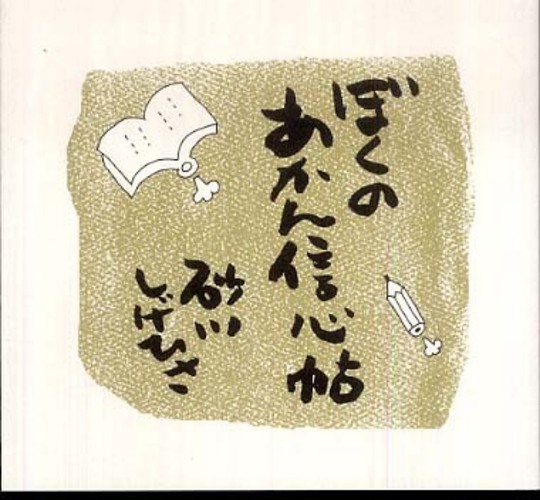 ぼくの
あかん信心帖
砂川
しげひさ